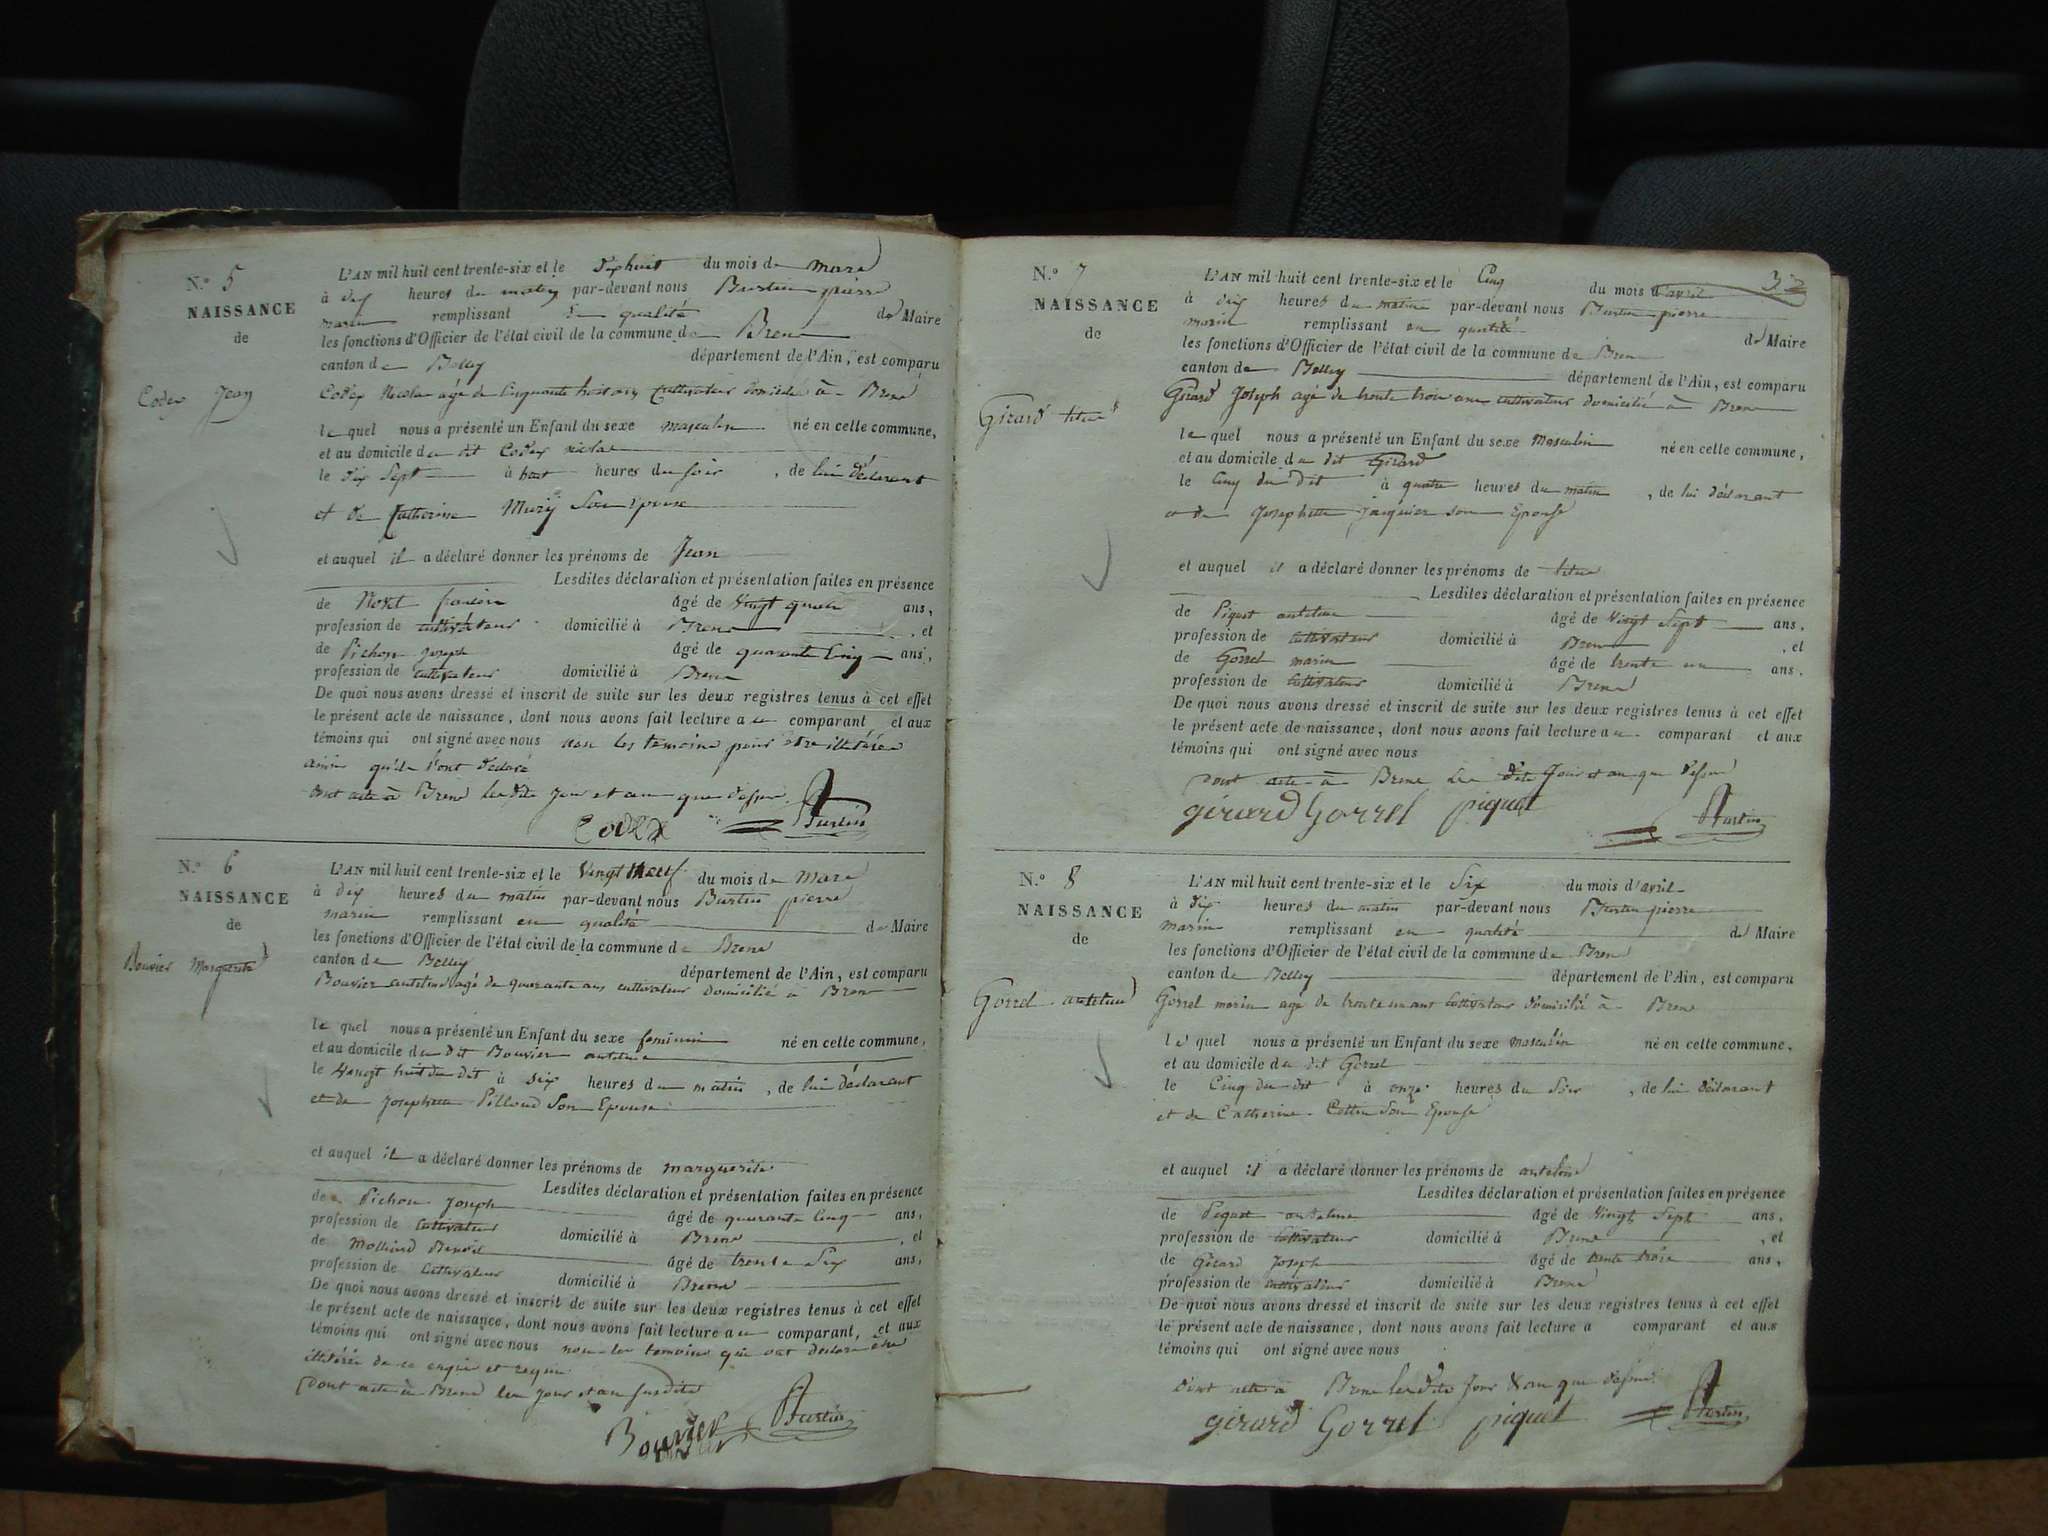 N.° 5
NAISSANCE
de
Codex Jean
L'AN mil huit cent trente-six et le dix huit du mois de mars
à dix heures du matin par-devant nous Burtin pierre
marin remplissant en qualité de Maire
les fonctions d'Officier de l'état civil de la commune de Brens
canton de Belley département de l'Ain, est comparu
Codex Nicolas âgé de Cinquante trois ans Cultivateur domicilié à Brens
le quel nous a présenté un Enfant du sexe masculin né en cette commune,
et au domicile du dit Codex nicolas
le dix sept à huit heures du soir, de lui déclarant
et de Catherine Mury Son épouse
et auquel il a déclaré donner les prénoms de Jean
Lesdites déclaration et présentation faites en présence
de âgé de vingt quatre ans,
profession de cultivateur domicilié à Brens, et
de Pichon joseph âgé de quarante cinq ans,
profession de cultivateur domicilié à Brens
De quoi nous avons dressé et inscrit de suite sur les deux registres tenus à cet effet
le présent acte de naissance, dont nous avons fait lecture au comparant et aux
témoins qui ont signé avec nous non les temoins pour etre illétérés
ainsi qu'ils l'ont déclaré
dont acte à Brens les dits jour et an que dessus.
Codex Burtin
N.° 6
NAISSANCE
de
Bouvier Marguerite
L'AN mil huit cent trente-six et le Vingt Neuf du mois de Mars
à dix heures du matin par-devant nous Burtin pierre
marin remplissant en qualité de Maire
les fonctions d'Officier de l'état civil de la commune de Brens
canton de Belley département de l'Ain, est comparu
Bouvier antelme agé de quarante ans cultivateur domicilié à Brens
le quel nous a présenté un Enfant du sexe feminin né en cette commune,
et au domicile du dit Bouvier antelme
le Vingt huit du dit à six heures du matin, de lui déclarant
et de Josephte Pilloud Son Epouse
et auquel il a déclaré donner les prénoms de marguerite
Lesdites déclaration et présentation faites en présence
de Pichon Joseph âgé de quarante cinq ans,
profession de cultivateur domicilié à Brens, et
de Molliard Benoit âgé de trente Six ans,
profession de cultivateur domicilié à Brens
De quoi nous avons dressé et inscrit de suite sur les deux registres tenus à cet effet
le présent acte de naissance, dont nous avons fait lecture au comparant, et aux
témoins qui ont signé avec nous non les temoins qui ont déclaré être
illétérés de ce enquis et requis
dont acte à Brens les jour et an susdits
Bouvier Burtin
32
N.° 7
NAISSANCE
de
Girard titus
L'AN mil huit cent trente-six et le Cinq du mois d'avril
à dix heures du matin par-devant nous Burtin pierre
marin remplissant en qualité de Maire
les fonctions d'Officier de l'état civil de la commune de Brens
canton de Belley département de l'Ain, est comparu
Girard Joseph agé de trente trois ans cultivateur domicilié à Brens
le quel nous a présenté un Enfant du sexe Masculin né en cette commune,
et au domicile du dit Girard
le Cinq du dit à quatre heures du matin, de lui déclarant
et de Josephte Jacquier son Epouse
et auquel il a déclaré donner les prénoms de titus
Lesdites déclaration et présentation faites en présence
de Piquet antelme âgé de Vingt Sept ans,
profession de Cultivateur domicilié à Brens, et
de Gorrel marin âgé de trente un ans.
profession de Cultivateur domicilié à Brens
De quoi nous avons dressé et inscrit de suite sur les deux registres tenus à cet effet
le présent acte de naissance, dont nous avons fait lecture au comparant et aux
témoins qui ont signé avec nous
dont acte à Brens les dits Jour et an que dessus
girard Gorrel piquet Burtin
N.° 8
NAISSANCE
de
Gorrel antelme
L'AN mil huit cent trente-six et le Six du mois d'avril
à dix heures du matin par-devant nous Burtin pierre
marin remplissant en qualité de Maire
les fonctions d'Officier de l'état civil de la commune de Brens
canton de Belley département de l'Ain, est comparu
Gorrel marin agé de trente un ans Cultivateur domicilié à Brens
le quel nous a présenté un Enfant du sexe masculin né en cette commune.
et au domicile du dit Gorrel
le Cinq du dit à onze heures du Soir, de lui déclarant
et de Catherine Cottin Son Epouse
et auquel il a déclaré donner les prénoms de antelme
Lesdites déclaration et présentation faites en présence
de Piquet antelme âgé de Vingt Sept ans,
profession de Cultivateur domicilié à Brens, et
de Girard Joseph âgé de trente trois ans,
profession de Cultivateur domicilié à Brens
De quoi nous avons dressé et inscrit de suite sur les deux registres tenus à cet effet
le présent acte de naissance, dont nous avons fait lecture a comparant et aux
témoins qui ont signé avec nous
dont acte à Brens les dits Jour & an que dessus.
girard Gorrel piquet Burtin